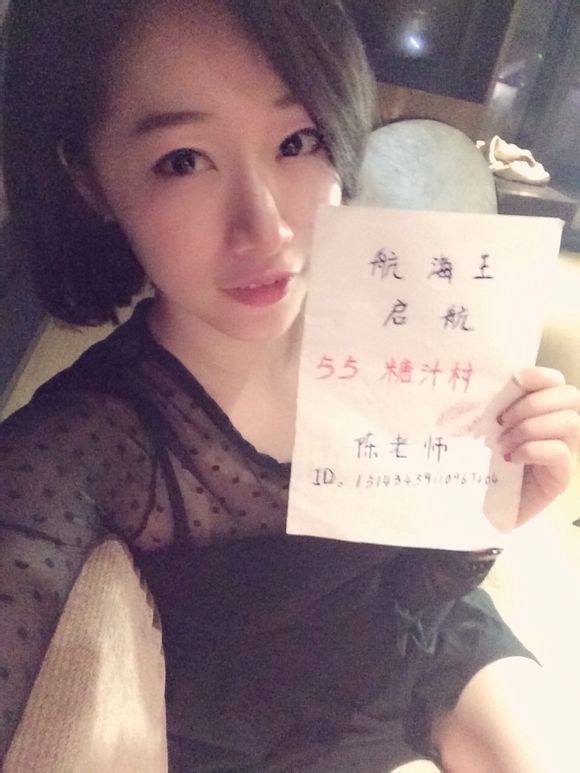 航海王
启航
55 糖汁村
陈老师
ID：15143459110967404